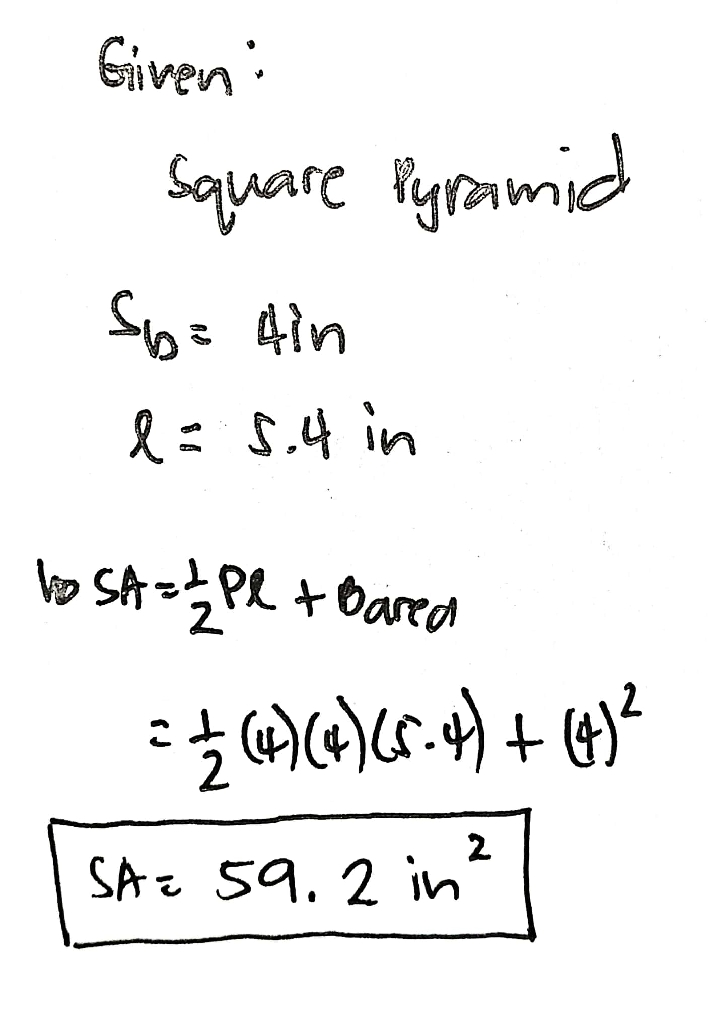 Given:
Square Pyramid
Sb = 4in
l = 5.4 in
SA = 1/2 Pl + Barea
= 1/2 (4)(4)(5.4) + (4)²
SA = 59.2 in²